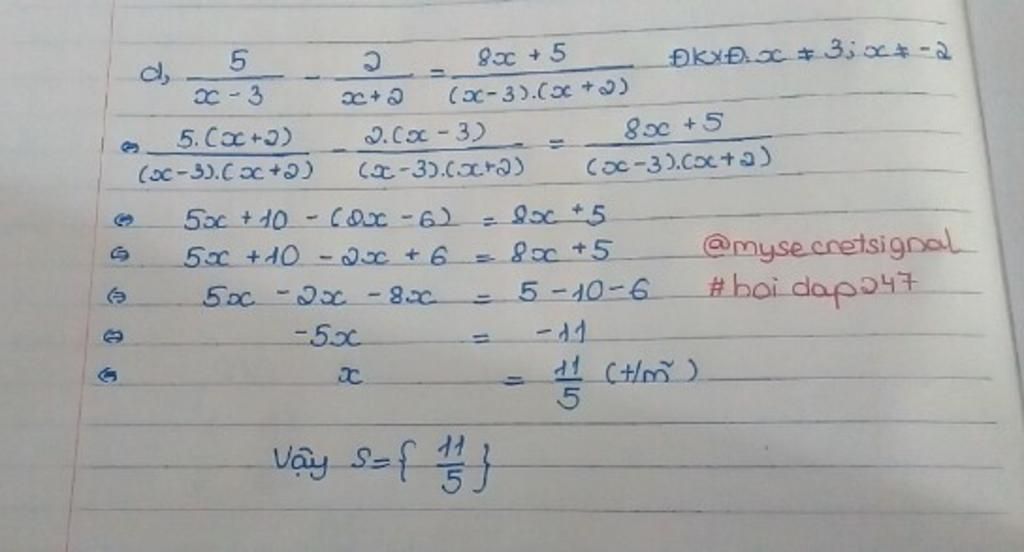 d, 5/(x - 3) - 2/(x+2) = (8x + 5)/((x-3).(x+2)) ĐKXĐ: x ≠ 3; x ≠ -2
⇔ (5.(x+2))/((x-3).(x+2)) - (2.(x - 3))/((x-3).(x+2)) = (8x + 5)/((x-3).(x+2))
⇔ 5x + 10 - (2x - 6) = 8x + 5
⇔ 5x + 10 - 2x + 6 = 8x + 5
@mysecnetsignal
⇔ 5x - 2x - 8x = 5 - 10 - 6
#hoi dap247
⇔ -5x = -11
⇔ x = 11/5 (t/m)
Vậy S = { 11/5 }